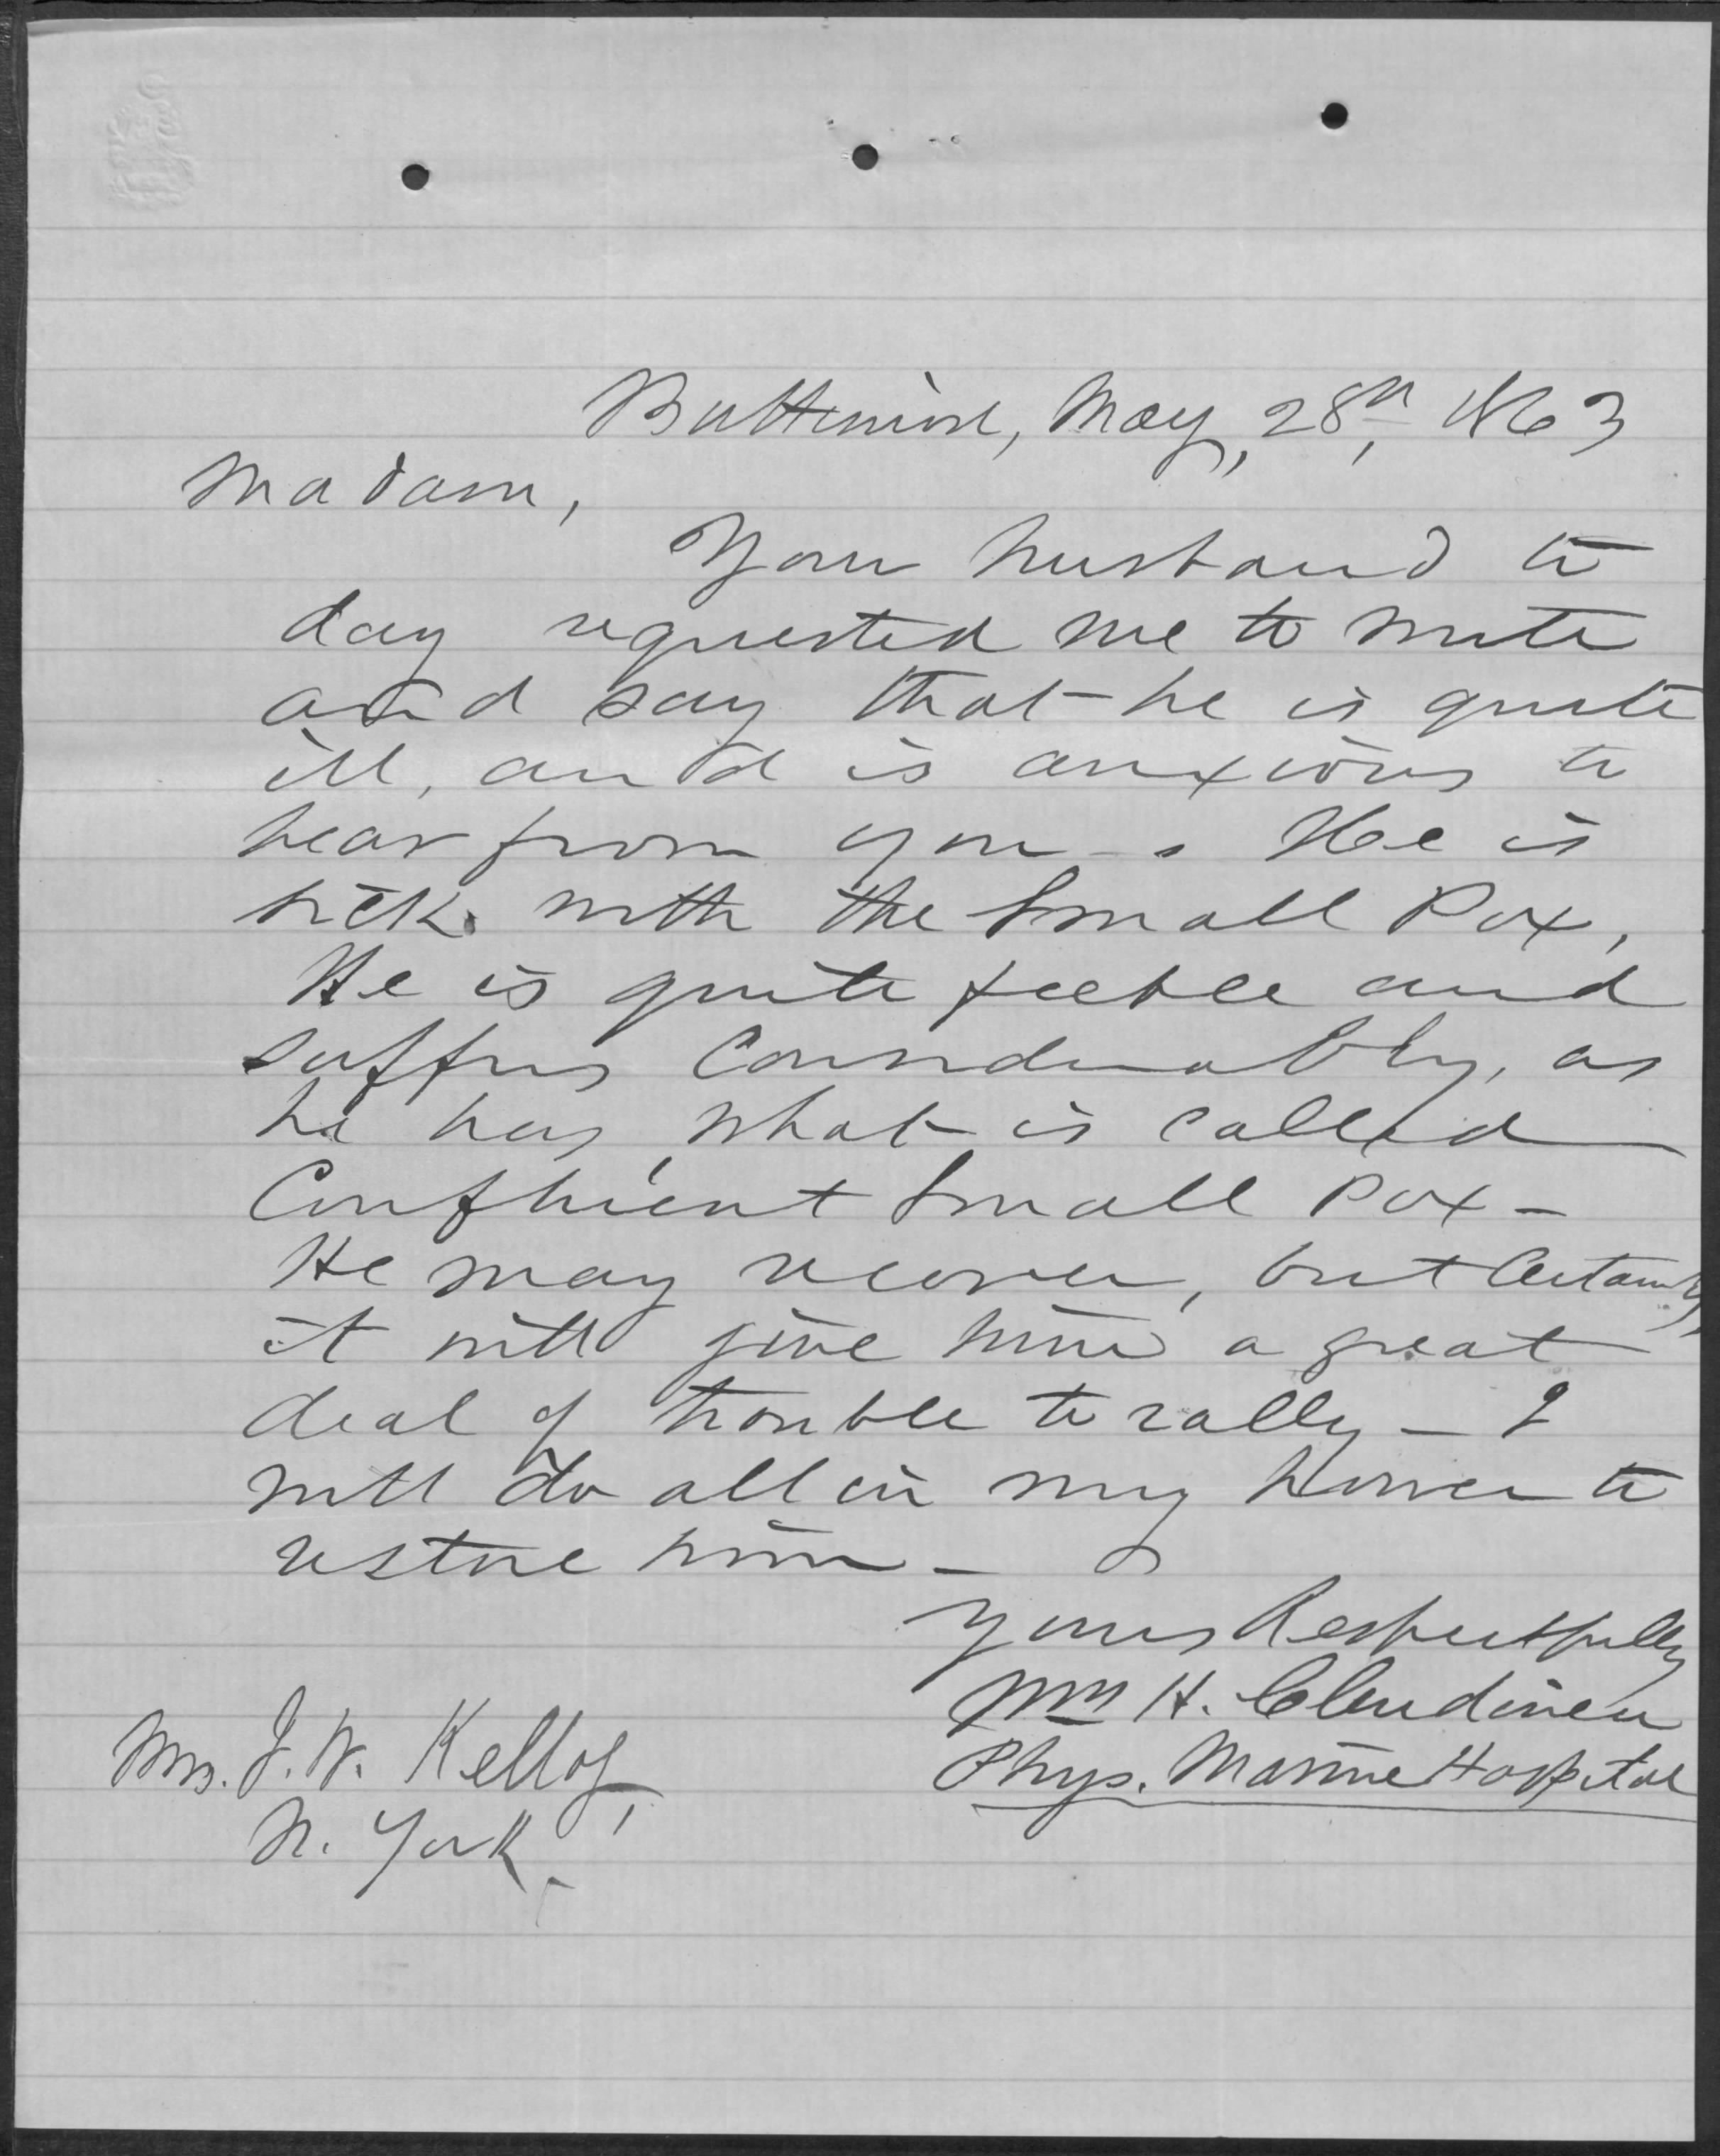 Baltimore, May, 28th, 1863
Madam,
Your husband to
day requested me to write
and say that he is quite
ill, and is anxious to
hear from you - . He is
sick with the Small Pox,
He is quite feeble and
suffers Considerably, as
he has, what is called
Confluent Small Pox -
He may recover, but Certainly,
it will give him a great
deal of trouble to rally - I
will do all in my power to
restore him -
Yours Respectfully
Wm H. Clendinen
Phys. Marine Hospital
Mrs. J. W. Kellog,
N. York.